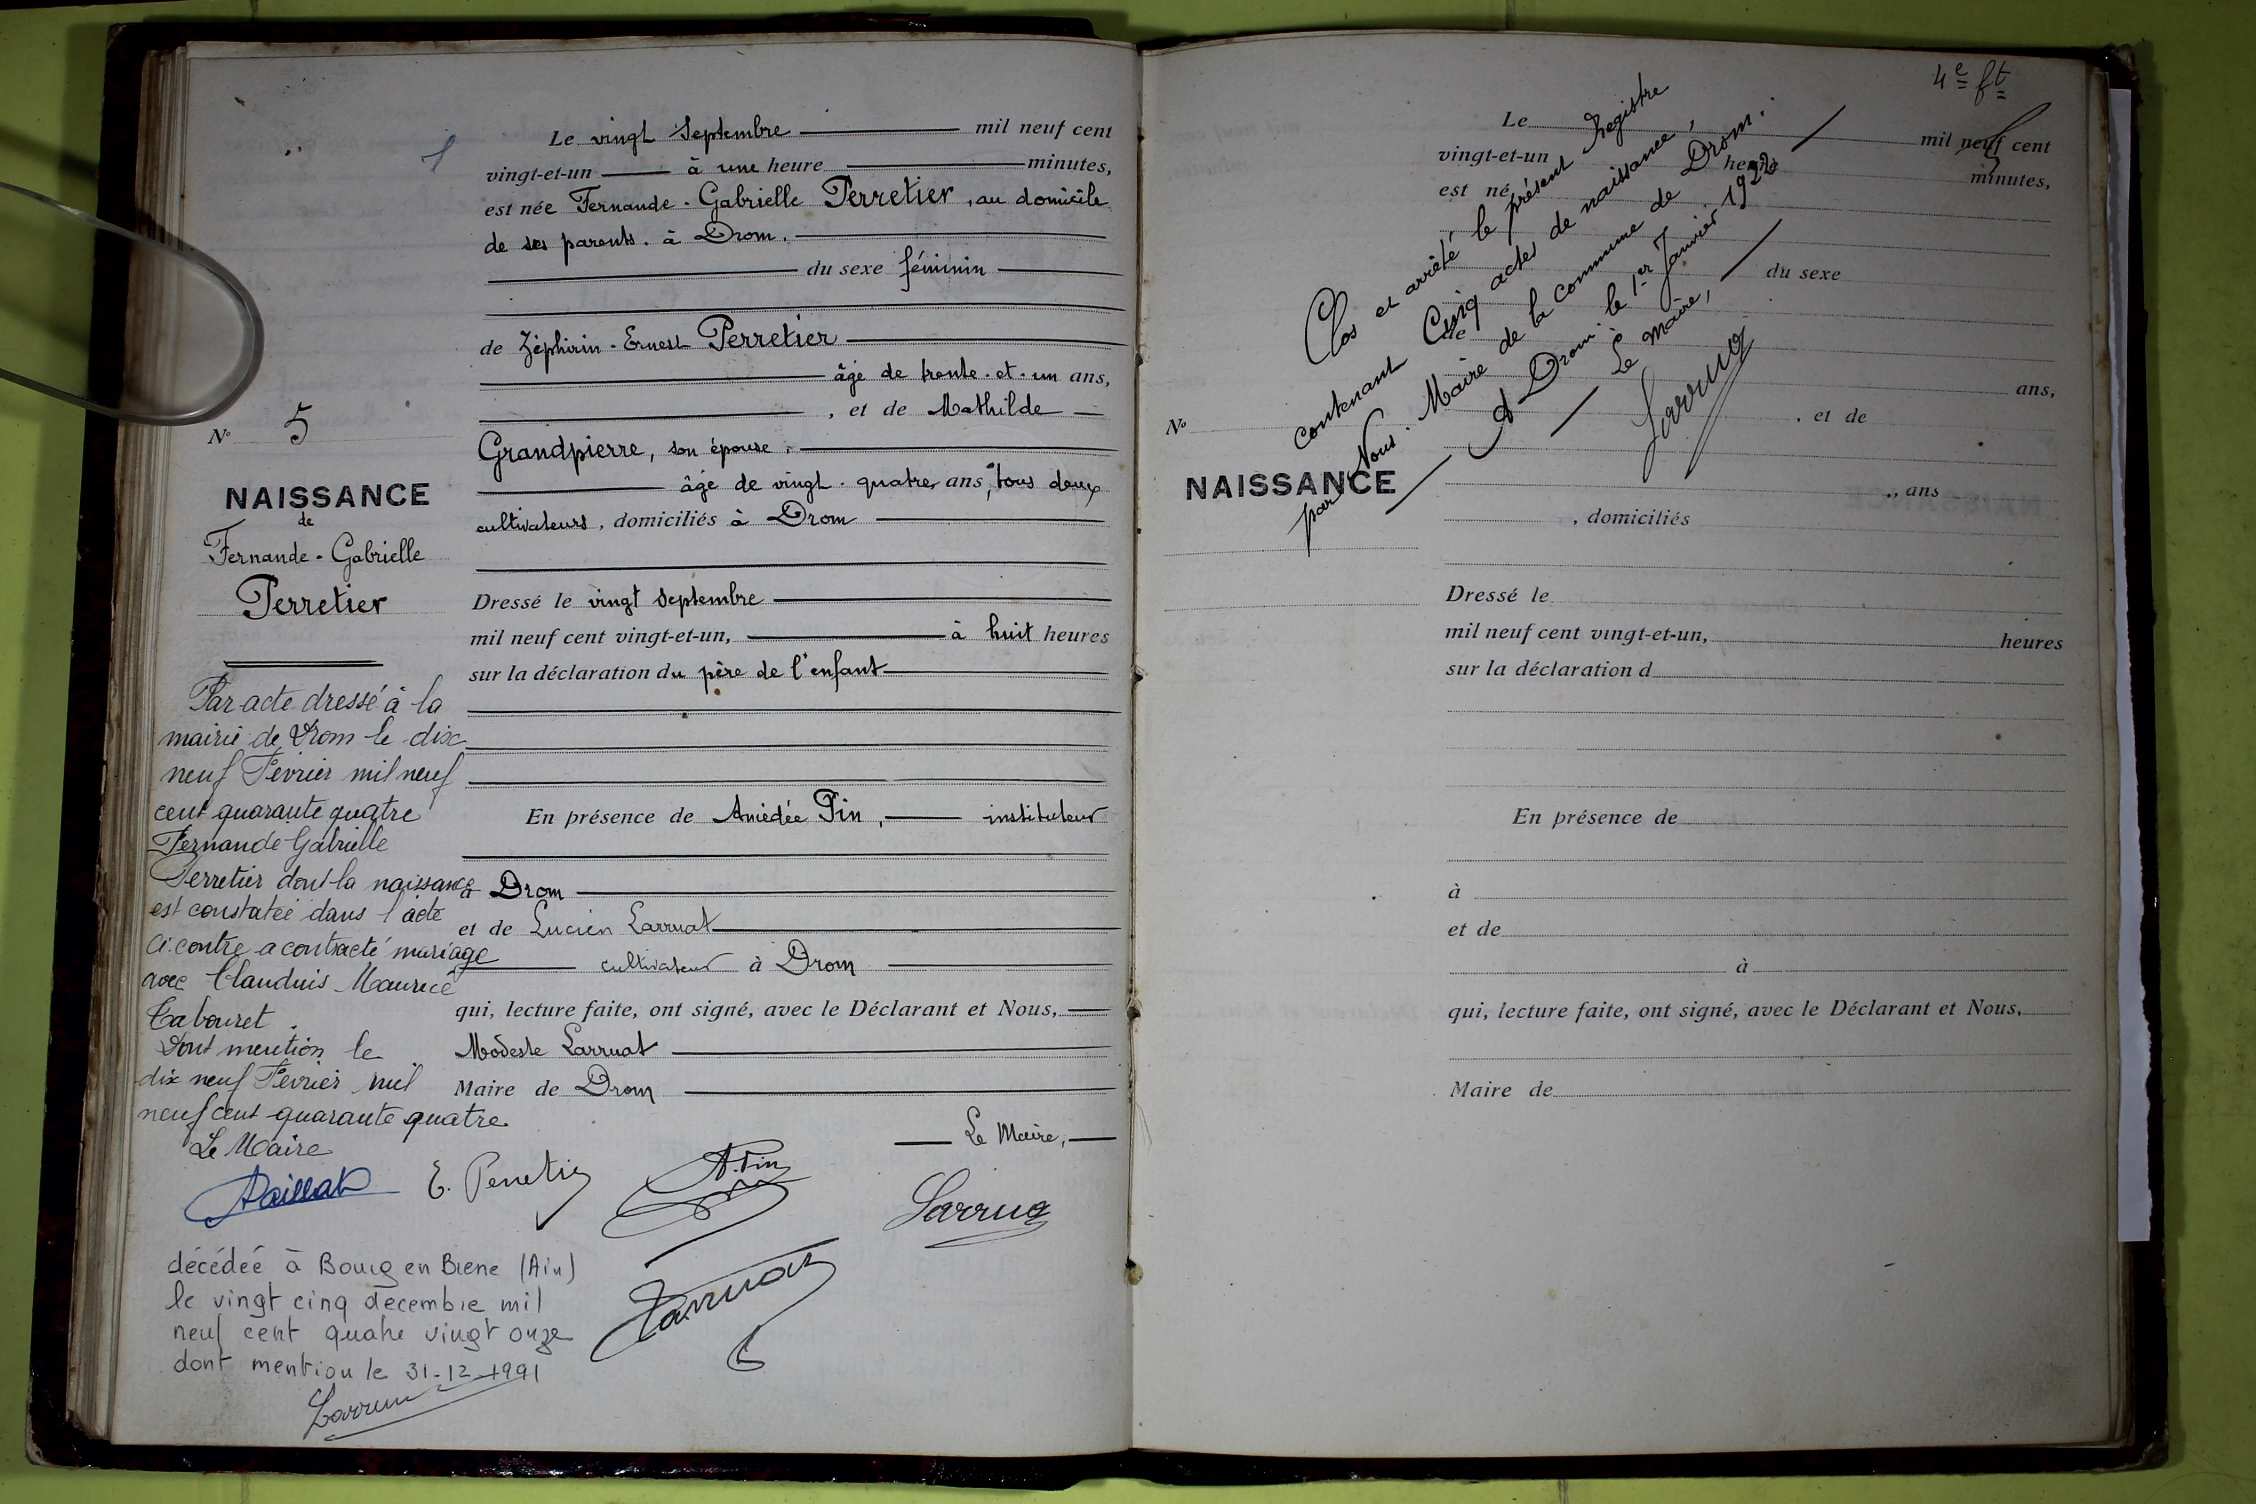 N° 5
NAISSANCE
de
Fernande-Gabrielle
Perretier
Par acte dressé à la
mairie de Drom le dix
neuf Février mil neuf
cent quarante quatre
Fernande Gabrielle
Perretier dont la naissance
est constatée dans l'acte
ci-contre a contracté mariage
avec Claudius Maurice
Tabouret.
Dont mention le
dix neuf Février mil
neuf cent quarante quatre
Le Maire
décédée à Bourg en Bresse (Ain)
le vingt cinq décembre mil
neuf cent quatre vingt onze
dont mention le 31-12-1991
Le vingt Septembre mil neuf cent
vingt-et-un à une heure minutes,
est née Fernande-Gabrielle Perretier, au domicile
de ses parents. à Drom.
du sexe féminin
de Zéphirin-Ernest Perretier
âgé de trente-et-un ans,
, et de Mathilde
Grandpierre, son épouse,
âgé de vingt-quatre ans, tous deux
cultivateurs, domiciliés à Drom
Dressé le vingt Septembre
mil neuf cent vingt-et-un, à huit heures
sur la déclaration du père de l'enfant
En présence de Amédée Pin, instituteur
à Drom
et de Lucien Larruat
cultivateur à Drom
qui, lecture faite, ont signé, avec le Déclarant et Nous,
Modeste Larruat
Maire de Drom
Le Maire,
E. Perretier
A. Pin
Larruat
Larruat
4e ft
Clos et arrêté le présent Registre
contenant Cinq actes de naissance,
par Nous. Maire de la commune de Drom.
A Drom. le 1er Janvier 1922
Le Maire,
Larruat
N°
NAISSANCE
Le mil neuf cent
vingt-et-un heure minutes,
est né
du sexe
de
ans,
, et de
, ans
, domiciliés
Dressé le
mil neuf cent vingt-et-un, heures
sur la déclaration d
En présence de
à
et de
à
qui, lecture faite, ont signé, avec le Déclarant et Nous,
Maire de